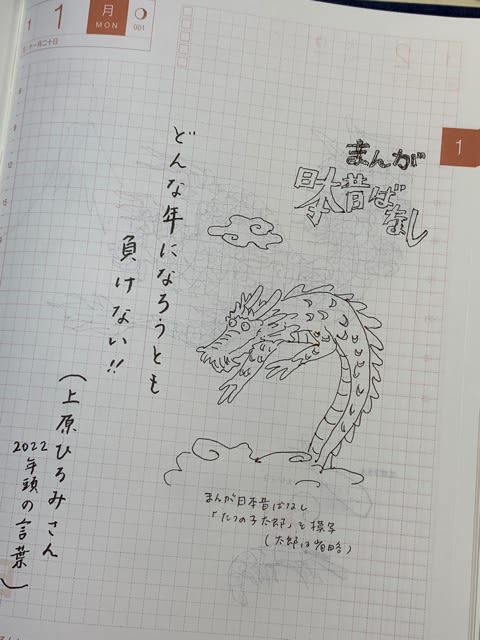 1
1
月
MON
001
十一月二十日
1
まんが
日本昔ばなし
どんな年になろうとも
負けない!!
(上原ひろみさん
2022年頭の言葉)
まんが日本昔ばなし
「たつの子太郎」を模写
(太郎は省略)